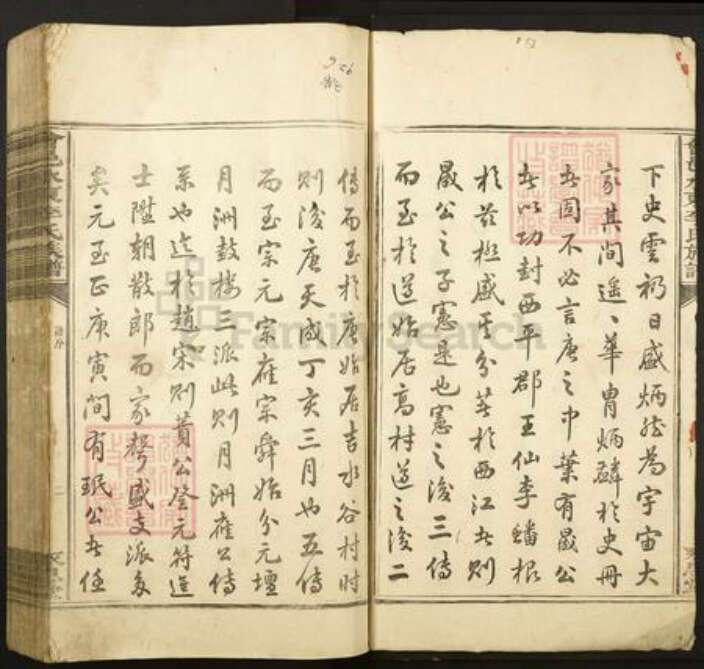 下史雲礽日盛炳然為宇宙大
家其間遥、華胄炳磷於史冊
者固不必言唐之中葉有晟公
者以功封西平郡王仙李蟠根
於茲極盛其分芝於西江者則
晟公之子憲是也憲之後三傳
而至於道始居高村道之後二
傳而至於唐始居吉水谷村時
則後唐天成丁亥三月也五傳
而至宗元宗應宗舜始分元壇
月洲鼓樓三派此則月洲應公傳
系也迄於趙宋則蕡公登元符進
士陞朝散郎而家聲盛支派多
矣元至正庚寅間有珉公者任
會邑水頭李氏族譜
譜序
二
FamilySearch